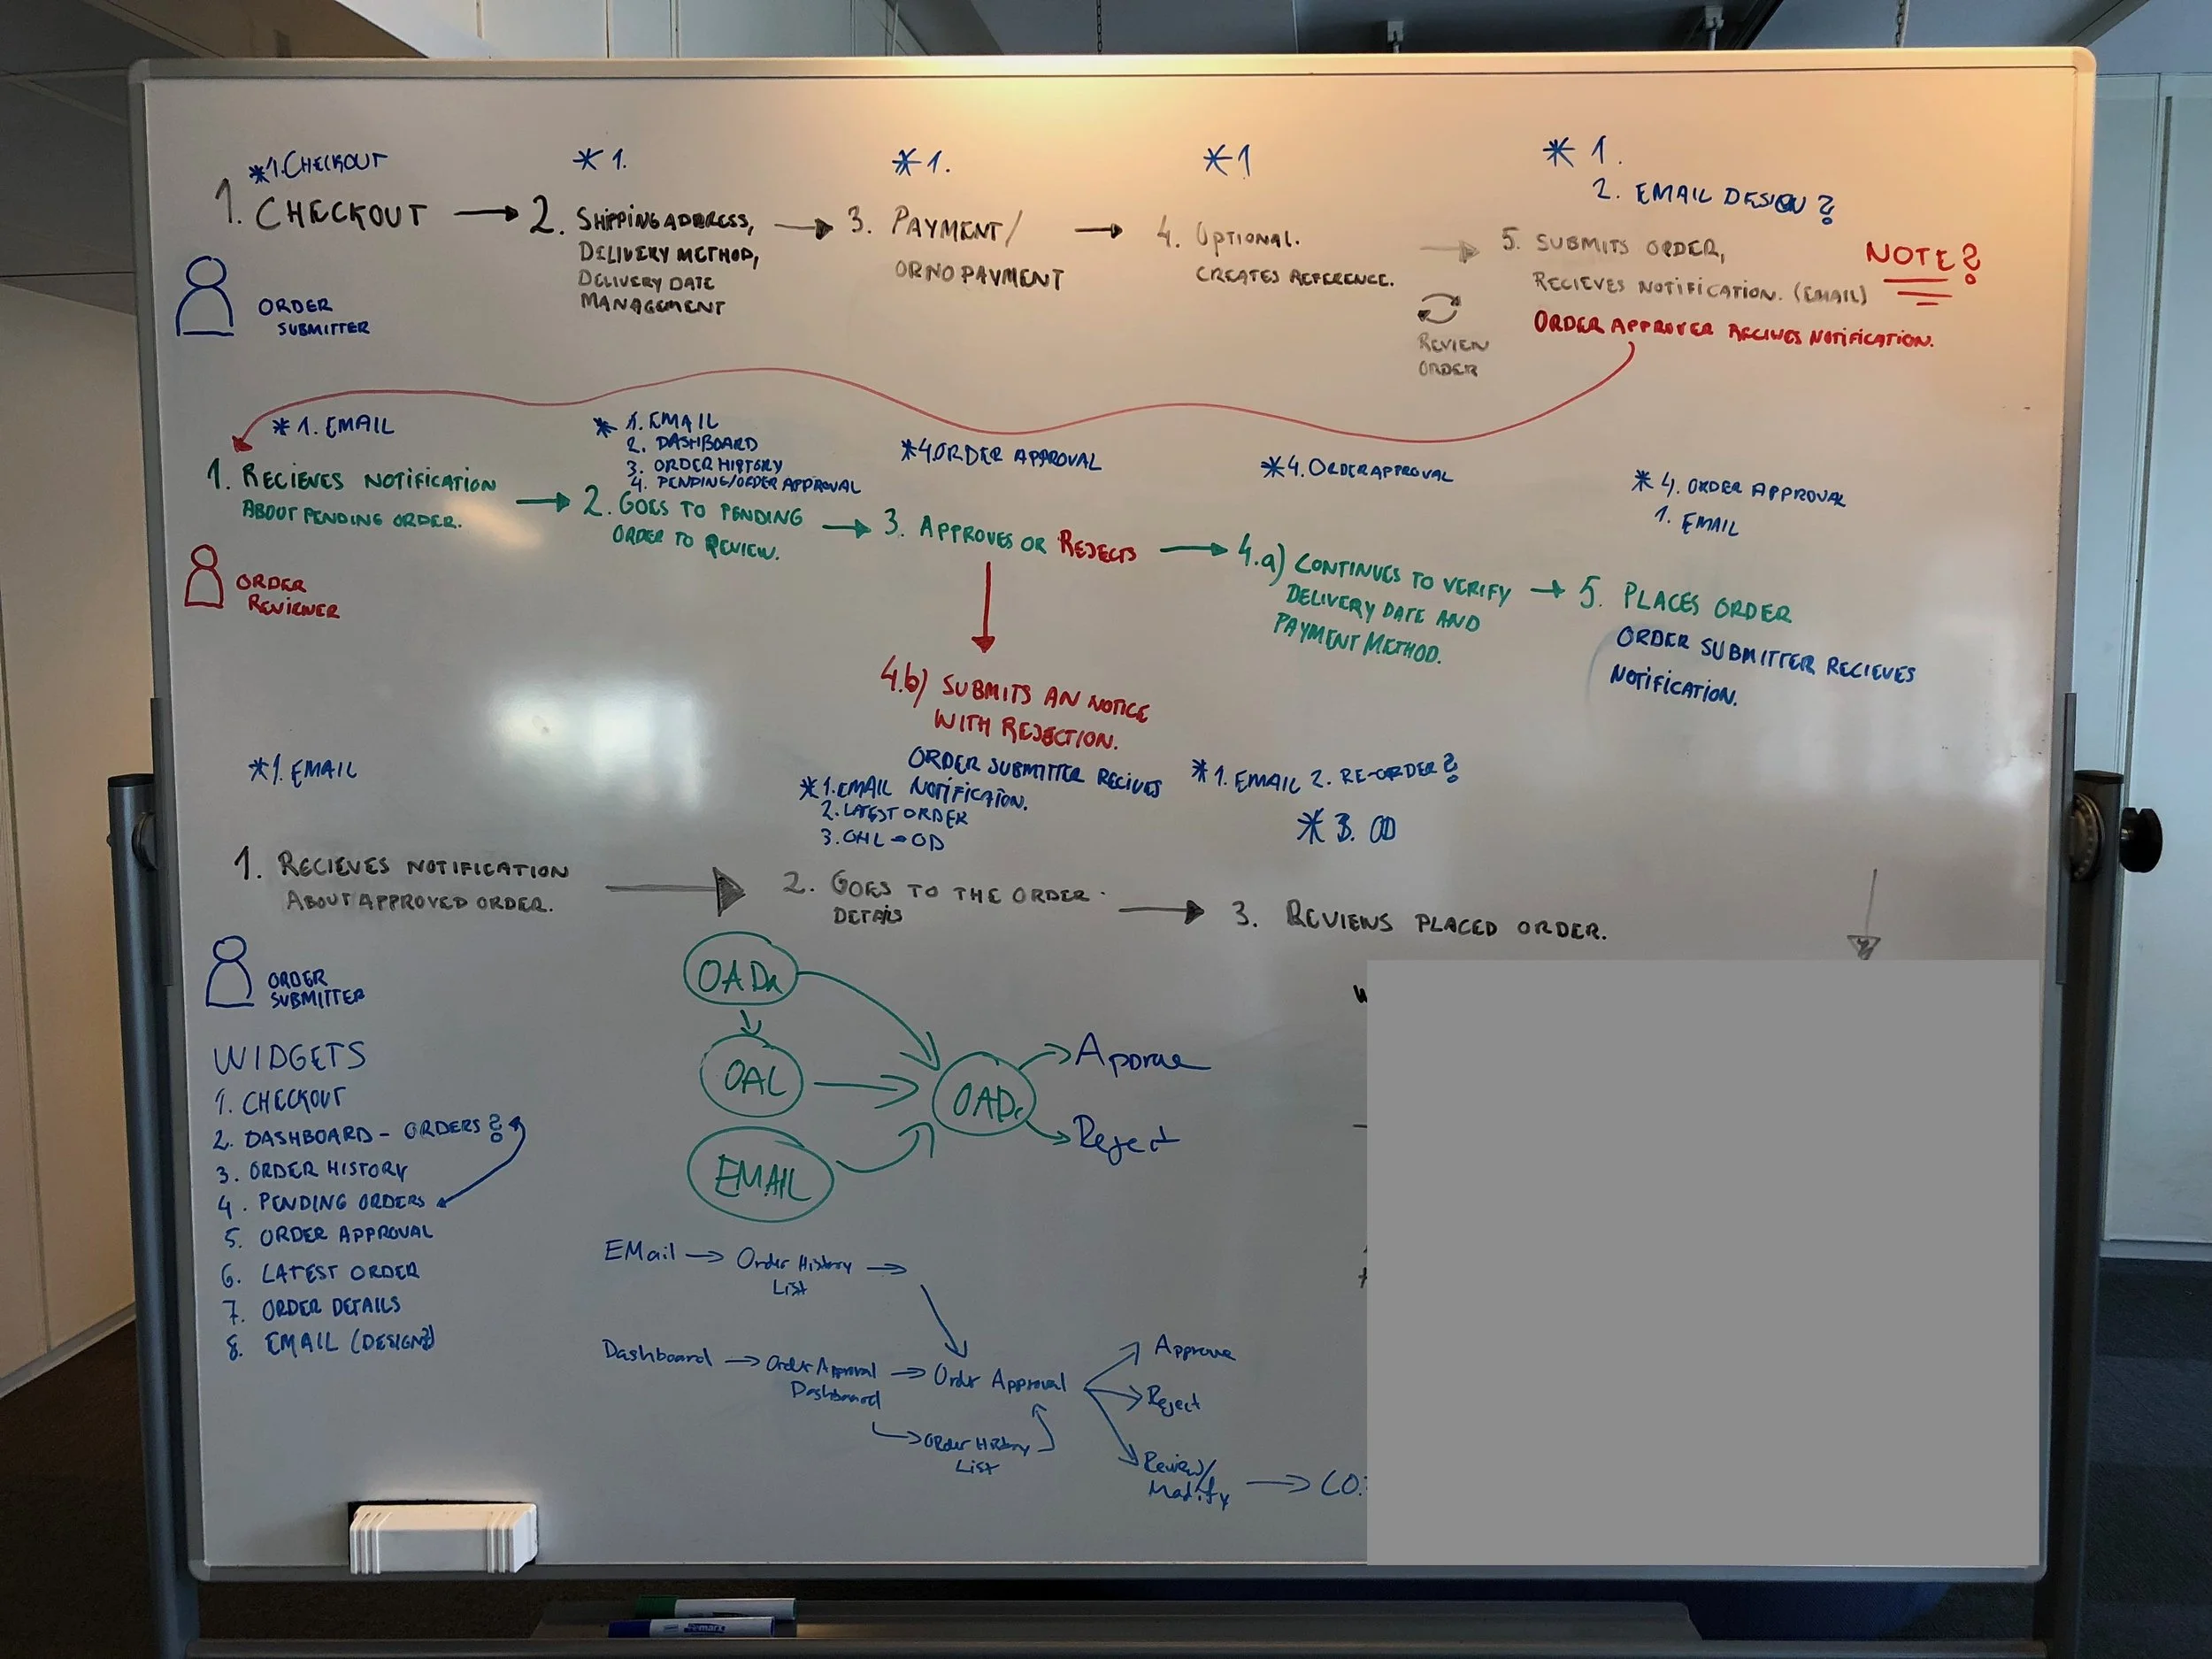 *1. CHECKOUT
1. CHECKOUT
ORDER
SUBMITTER
* 1.
2. SHIPPING ADDRESS,
DELIVERY METHOD,
DELIVERY DATE
MANAGEMENT
* 1.
3. PAYMENT/
OR NO PAYMENT
* 1
4. OPTIONAL.
CREATES REFERENCE.
REVIEW
ORDER
* 1.
2. EMAIL DESIGN?
5. SUBMITS ORDER,
RECIEVES NOTIFICATION. (EMAIL)
ORDER APPROVER RECIVES NOTIFICATION.
NOTE?
* 1. EMAIL
1. RECIEVES NOTIFICATION
ABOUT PENDING ORDER.
ORDER
REVIEWER
* 1. EMAIL
2. DASHBOARD
3. ORDER HISTORY
4. PENDING/ORDER APPROVAL
2. GOES TO PENDING
ORDER TO REVIEW.
*4. ORDER APPROVAL
3. APPROVES OR REJECTS
*4. ORDER APPROVAL
4.a) CONTINUES TO VERIFY
DELIVERY DATE AND
PAYMENT METHOD.
* 4. ORDER APPROVAL
1. EMAIL
5. PLACES ORDER
ORDER SUBMITTER RECIEVES
NOTIFICATION.
4.b) SUBMITS AN NOTICE
WITH REJECTION.
ORDER SUBMITTER RECIVES
NOTIFICATION.
*1. EMAIL
1. RECIEVES NOTIFICATION
ABOUT APPROVED ORDER.
ORDER
SUBMITTER
*1. EMAIL
2. LATEST ORDER
3. OHL → OD
2. GOES TO THE ORDER
DETAILS
* 1. EMAIL 2. RE-ORDER?
* 3. OD
3. REVIEWS PLACED ORDER.
WIDGETS
1. CHECKOUT
2. DASHBOARD - ORDERS?
3. ORDER HISTORY
4. PENDING ORDERS
5. ORDER APPROVAL
6. LATEST ORDER
7. ORDER DETAILS
8. EMAIL (DESIGN?)
OADa
OAL
EMAIL
OADe
Approve
Reject
EMail → Order History
List
Dashboard → Order Approval
Dashboard
→ Order Approval
Order History
List
Approve
Reject
Review/
Modify